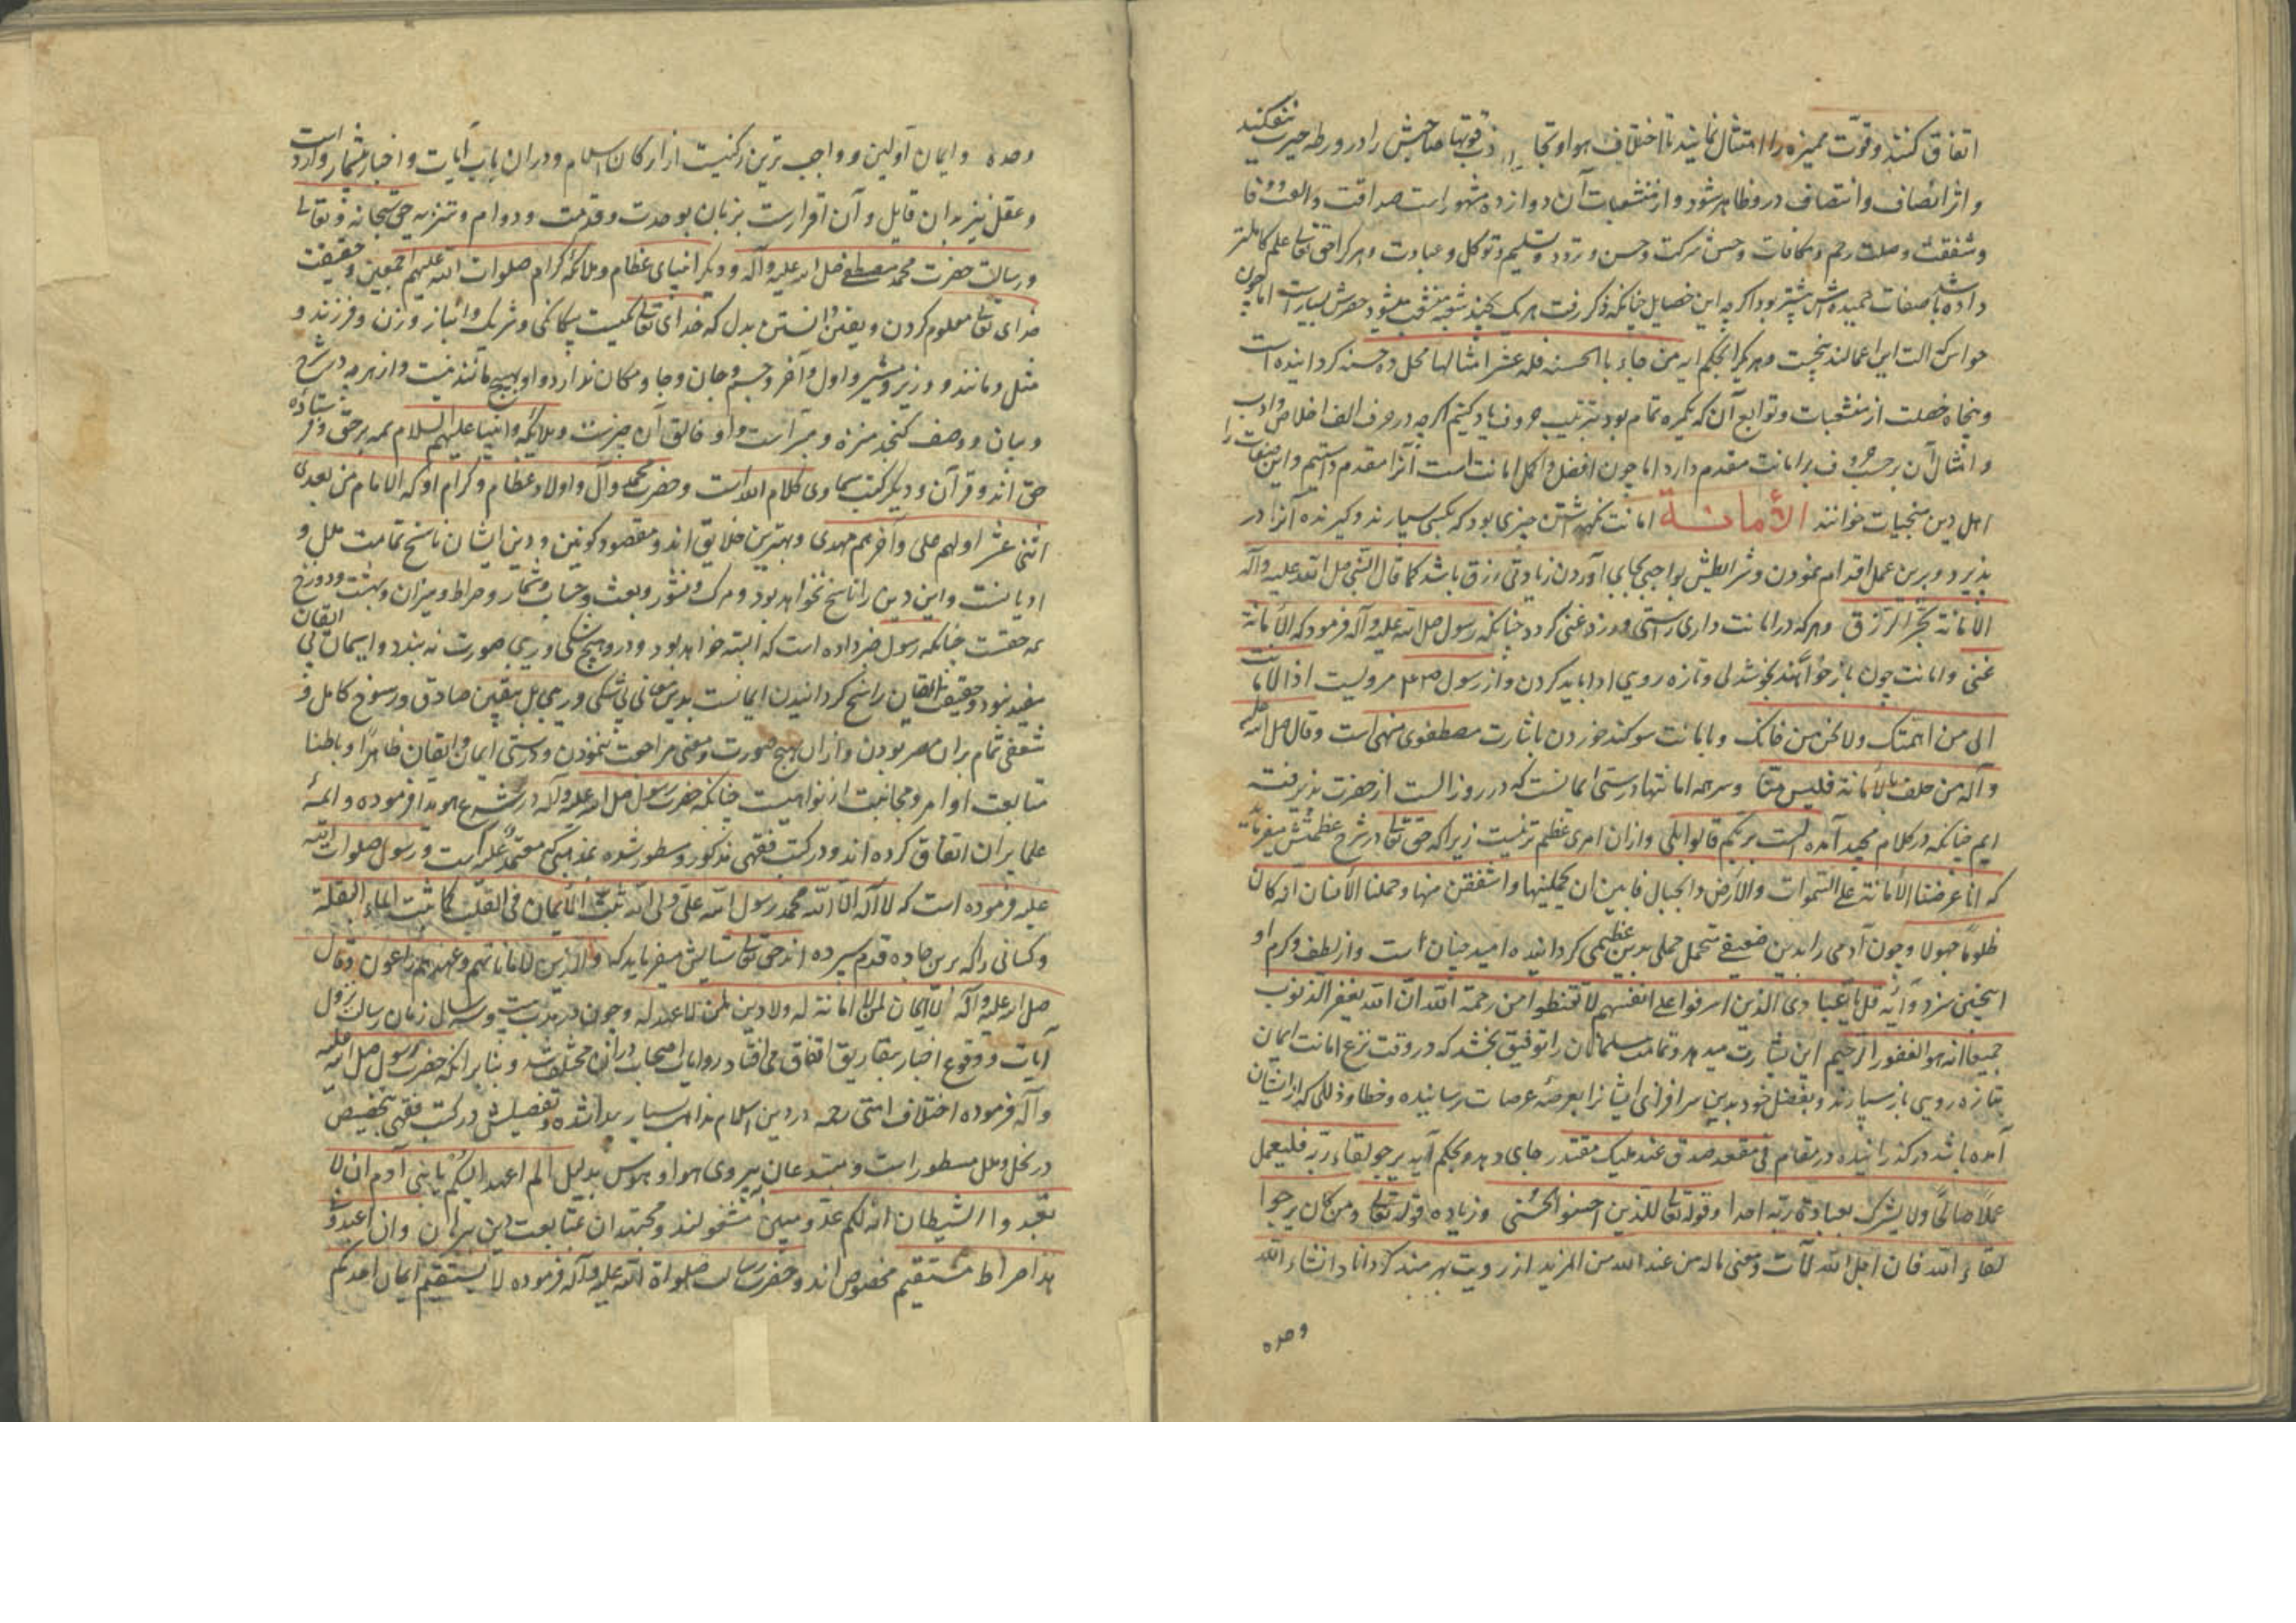 اتفاق کنند و قوّت ممیزه را امتثال نمایند تا اختلاف هوا و صاحبش را در ورطه حیرت نیفکنید
و اثر انصاف و انتصاف در و ظاهر شود و از منشعبات آن دوازده مشهور است صداقت و الفت و وفا
و شفقت و صلت رحم و مکافات و حسن شرکت و حسن و تودد و تسلیم و توکل و عبادت و هر کرا حق تعالی علم کاملتر
داده باشد صفات حمیده‌ش بیشتر بود اگر چه این خصایل چنانکه ذکر رفت هر یک بچند شعبه منشعب میشود حصرش بسیار است اما چون
حواس که آلت این اعمالند پنجست و هر یکرا بحکم آیه من جاء با الحسنه فله عشر امثالها محل ده حسنه گردانیده است
و پنجاه خصلت از منشعبات و توابع آن که یکمره تمام بود بترتیب حروف یاد کنیم اگر چه در حرف الف اخلاص و ادب
و امثال آن بر حسب حروف بر امانت مقدم دارد اما چون افضل و اکمل امانت است آنرا مقدم داشتیم و این صفات را
اهل دین منجیات خوانند الأمانة امانت نگهداشتن چیزی بود که بکسی سپارند و گیرنده آنرا در
پذیرد و برین عمل اقدام نمودن و شرایطش بواجبی بجای آوردن زیادتی رزق باشد کما قال النبی صلی الله علیه و آله
الأمانة تجر الرزق و هر که در امانت داری راستی ورزد غنی گردد چنانکه رسول صلی الله علیه و آله فرمود که الأمانة
غنی و امانت چون باز خواهند بخوشدلی و تازه رویی ادا باید کردن و از رسول مرویست ادّ الامانت
الی من ائتمنک ولا تخن من خانک و بامانت سوکند خوردن باشارت مصطفوی منهی است و قال صلی الله علیه
و آله من حلف بالأمانة فلیس منّا و سر همه امانتها درستی ایمانست که در روز الست از حضرت پذیرفته
ایم چنانکه در کلام مجید آمده الست بربکم قالوا بلی و از ان امری عظیم تر نیست زیرا که حق تعالی در شرح عظمتش میفرماید
که انّا عرضنا الأمانة علی السّموات والأرض والجبال فابین ان یحملنها و اشفقن منها و حملها الأنسان انه کان
ظلوماً جهولا و چون آدمی را بدین ضعیفی متحمل حملی بدین عظیمی کردانیده امید چنان است و از لطف و کرم او
اینچنین سزد و آیه قل یا عبادی الذین اسرفوا علی انفسهم لا تقنطوا من رحمة الله ان الله یغفر الذنوب
جمیعا انه هو الغفور الرحیم این بشارت میدهد و تمامت مسلمانان را توفیق بخشد که در وقت نزع امانت ایمان
بتازه رویی باز سپارند و بفضل خود بدین سر افرازی ایشانرا بعرصه عرصات رسانیده و خطا و ذللی که از ایشان
آمده باشد در گذرانیده در مقام فی مقعد صدق عند ملیک مقتدر جای دهد و بحکم آیه یرجو لقاء ربّه فلیعمل
عملاً صالحاً ولا یشرک بعبادة ربّه احدا و قوله تعالی للذین احسنوا الحسنی و زیاده قوله تعالی و من کان یرجوا
لقاء الله فان اجل الله لآت و معنی ماله من عند الله من المزید از رویت بهره‌مند گرداناد انشاء الله
وحده
وحده و ایمان اوّلین و واجب ترین رکنیست از ارکان اسلام و در ان باب آیات و اخبار بیشمار وارد است
و عقل نیز بدان قایل و آن اقرارست بزبان بوحدت و قدمت و دوام و تنزیه حق سبحانه و تعالی
و رسالت حضرت محمد مصطفی صلی الله علیه و آله و دیگر انبیای عظام و ملائکه کرام صلوات الله علیهم اجمعین و حقیقت
خدای تعالی معلوم کردن و یقین دانستن بدل که خدای تعالی یکیست بیکانکی و شریک و انباز و زن و فرزند و
مثل و مانند و وزیر و مشیر و اول و آخر و جسم و جان و جا و مکان ندارد و او بهیچ مانند نیست و از هر چه در شرح
و بیان و وصف کنجد منزه و مبرّاست و او خالق آن چیزست و ملائکه و انبیا علیهم السلام همه بر حق و فرستاده
حق اند و قرآن و دیگر کتب سماوی کلام الله است و حضرت محمد و آل و اولاد عظام و کرام او که الامام من بعدی
اثنی عشر اولهم علی و آخرهم مهدی و بهترین خلایق اند و مقصود کونین و دین ایشان ناسخ تمامت ملل و
ادیانست و این دین را ناسخ نخواهد بود و مرک و نشور و بعث و حساب و شمار و صراط و میزان و بهشت و دوزخ
همه حقست چنانکه رسول خبر داده است که البته خواهد بود و در و هیچ شکی و ریبی صورت نه بندد و ایمان بی ایقان
مفید نبود و حقیقت ایقان راسخ گردانیدن ایمانست بدین معانی بی شکی و ریبی بل بیقین صادق و رسوخ کامل و
شعفی تمام بر ان مصر بودن و از ان بهیچ صورت و معنی مراجعت ننمودن و درستی ایمان و ایقان ظاهراً و باطنا
متابعت اوامر و مجانبت از نواهیست چنانکه حضرت رسول صلی الله علیه و آله در شرع هویدا فرموده و ائمهٔ
علما بر ان اتفاق کرده اند و در کتب فقهی مذکور و مسطور شده بمذهبی که معتمد علیه است و رسول صلوات الله
علیه فرموده است که لا اله الّا الله محمد رسول الله علی ولی الله یثبت الأیمان فی القلب کما یثبت الماء البقلة
و کسانی را که برین جاده قدم سپرده اند حق تعالی ستایش میفرماید که والذین لاماناتهم و عهدهم راعون و قال
صلی الله علیه و آله لا ایمان لمن لا امانة له ولا دین لمن لا عهد له و چون در مدت بیست و سه سال زمان رسالت نزول
آیات و وقوع اخبار بتفاریق اتفاق می افتاد روایات اصحاب در ان مختلف شد و بنا بر انکه حضرت رسول صلی الله علیه
و آله فرموده اختلاف امّتی رحمه در دین اسلام مذاهب بسیار پیدا شده و تفصیلش در کتب فقهی بتخصیص
در نحل و ملل مسطور است و مبتدعان پیروی هوا و هوس بدلیل الم اعهد الیکم یا بنی آدم ان لا
تعبدوا الشیطان انه لکم عدو مبین مشغولند و مجتهدان بمتابعت دین یزدان و ان اعبدونی
هذا صراط مستقیم مخصوص اند و حضرت رسالت صلوات الله علیه و آله فرموده لا یستقیم ایمان احدکم